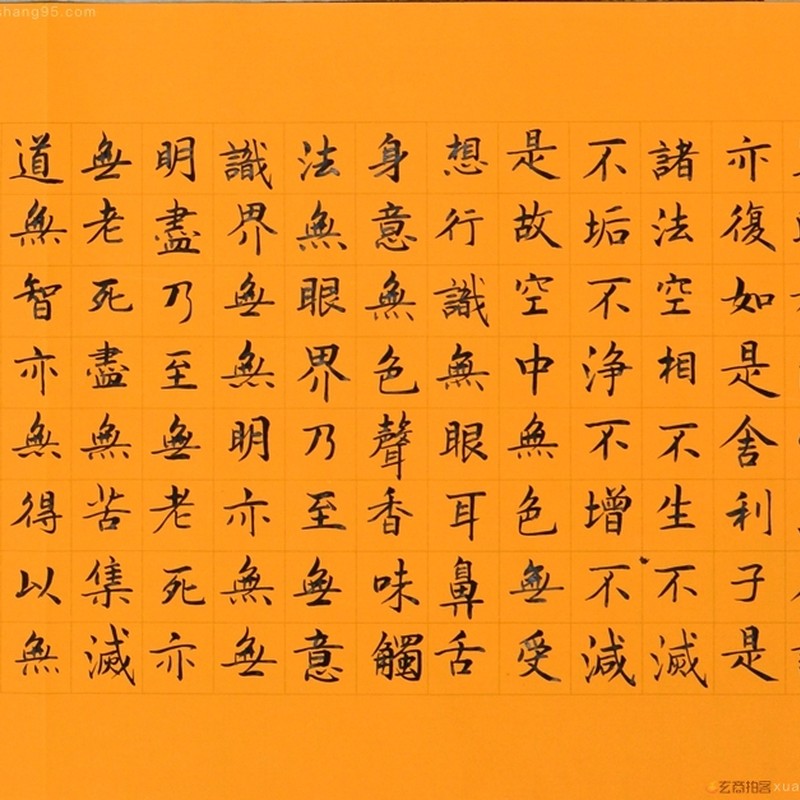 亦復如是舍利子是
諸法空相不生不滅
不垢不浄不增不減
是故空中無色無受
想行識無眼耳鼻舌
身意無色聲香味觸
法無眼界乃至無意
識界無無明亦無無
明盡乃至無老死亦
無老死盡無苦集滅
道無智亦無得以無
shang95.com
玄商拍客 xua